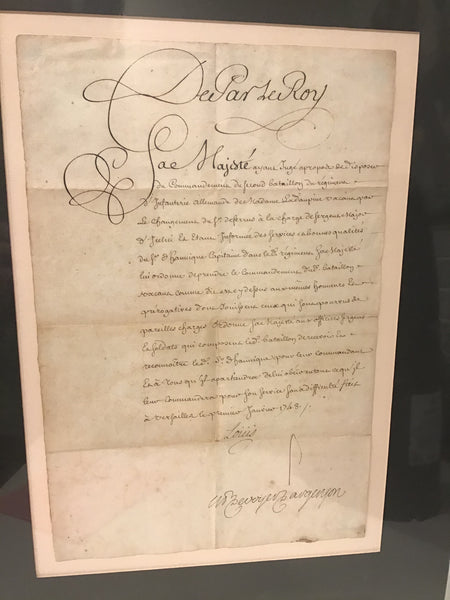 De Par Le Roy
Sae Majesté ayant Jugé apropos de disposer
du Commandement du second bataillon du régiment
d'Infanterie allemande de Madame La dauphine vacant par
Le changement du Sr. à la charge de Sergent Major
d' Et Etant Informée des services et bonnes qualités
du Sr. d'hannique Capitaine dans led. régiment Sae Majesté
lui ordonne de prendre le Commandement dud. bataillon
vacant comme dit est cy dessus aux mesmes honneurs et
prérogatives dont Jouissent ceux qui sont pourvus de
pareilles charges Ordonne Sae Majesté aux officiers Sergens
Et soldats qui composent led. bataillon de recevoir Et
reconnoître led. Sr. d'hannique pour leur Commandant
Et à Tous qu'il apartiendra de lui obeir en tout ce qu'il
leur commandera pour son service sans difficulté fait
à Versailles le premier Janvier 1748
Louis
De voyer D'argenson